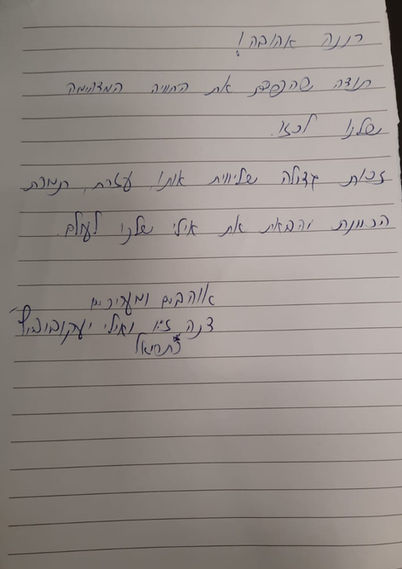 רננה אהובה!
תודה שהפכת את החוויה המדהימה
שלנו לכזו.
זכות גדולה שליווית אותנו, עזרת, תמכת
הכוונת והבאת את אילי שלנו לעולם.
אוהבים ומעריכים
דנה זיו ואילי יעקובוביץ